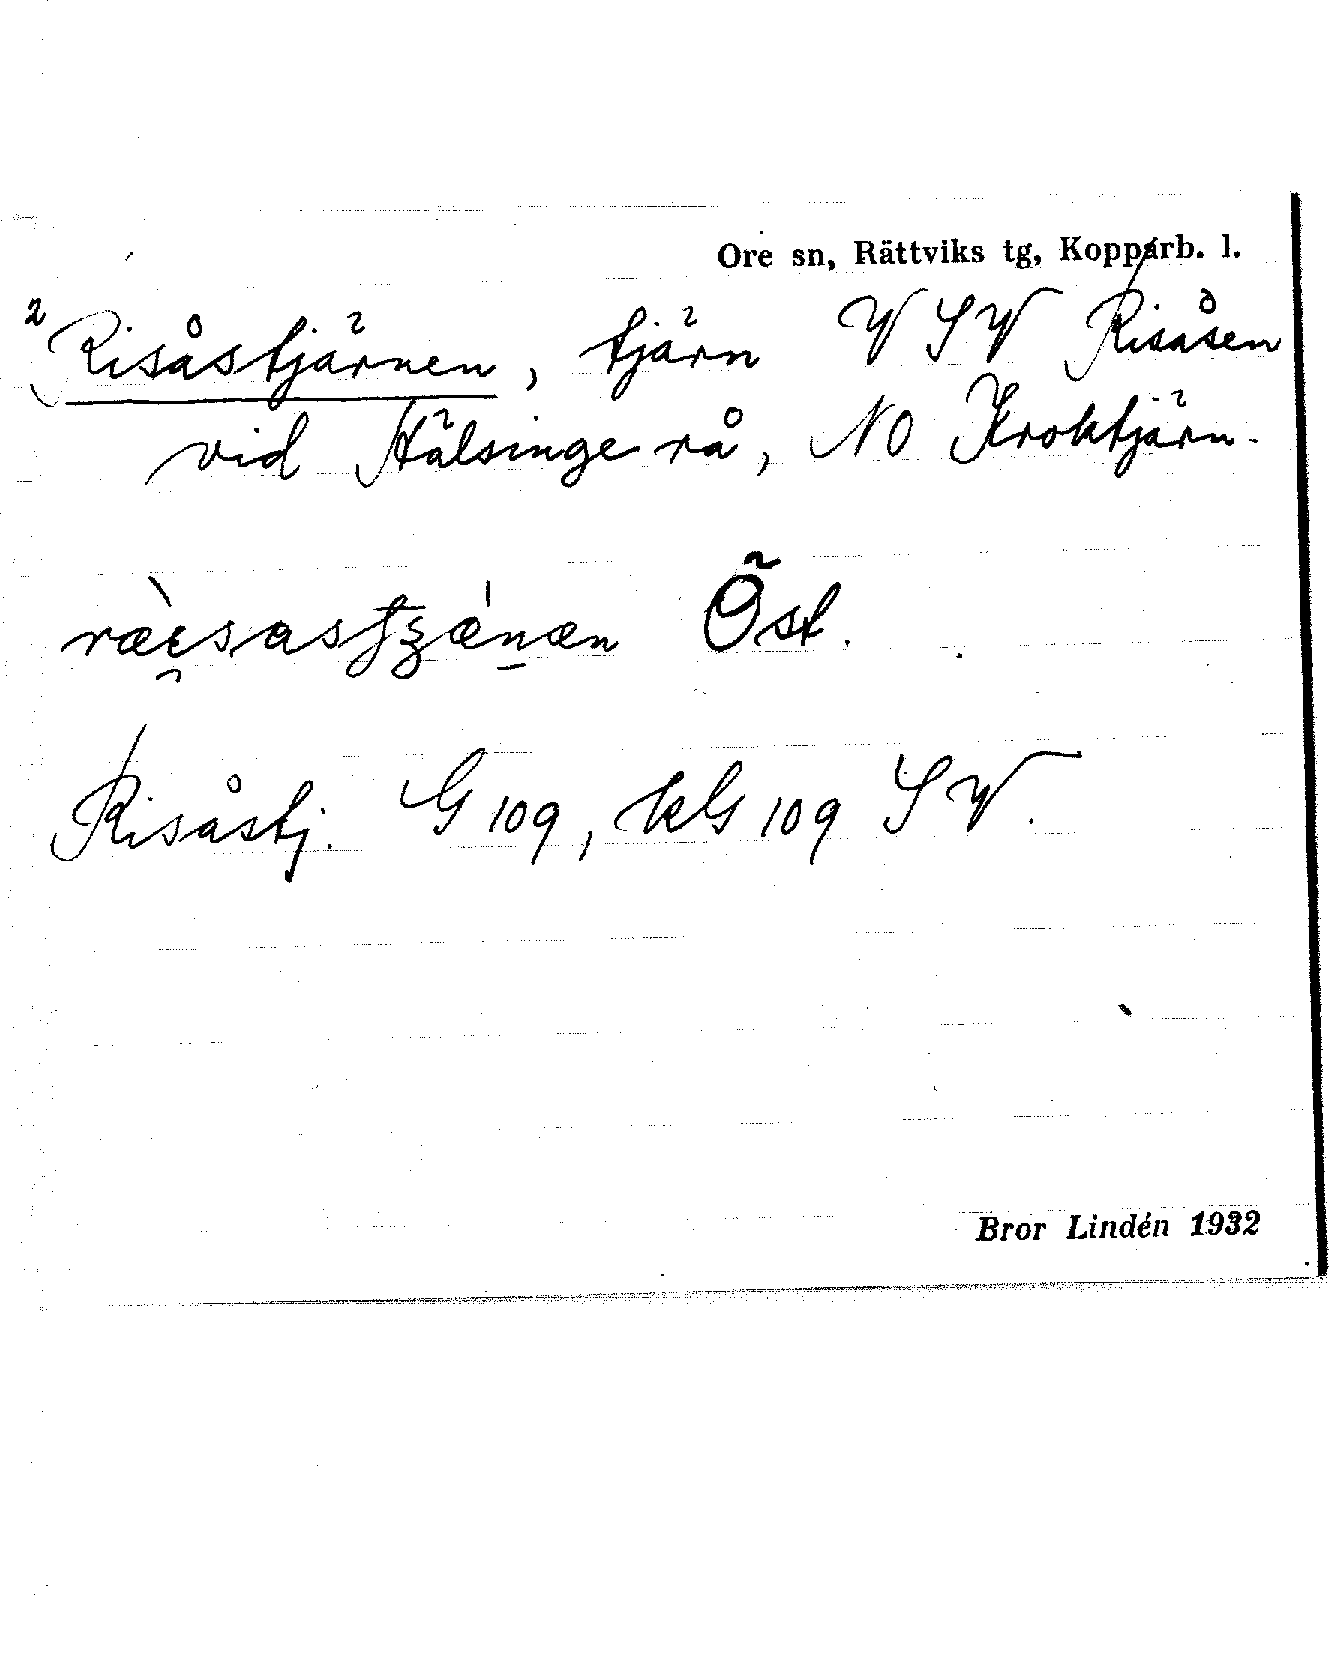 Ore sn, Rättviks tg, Kopparb. l.
2 Risåstjärnen, tjärn VSV Risåsen
vid Hälsingerå, NO Kroktjärn.
Öst.
Risåstj. G 109, kG 109 SV.
Bror Lindén 1932